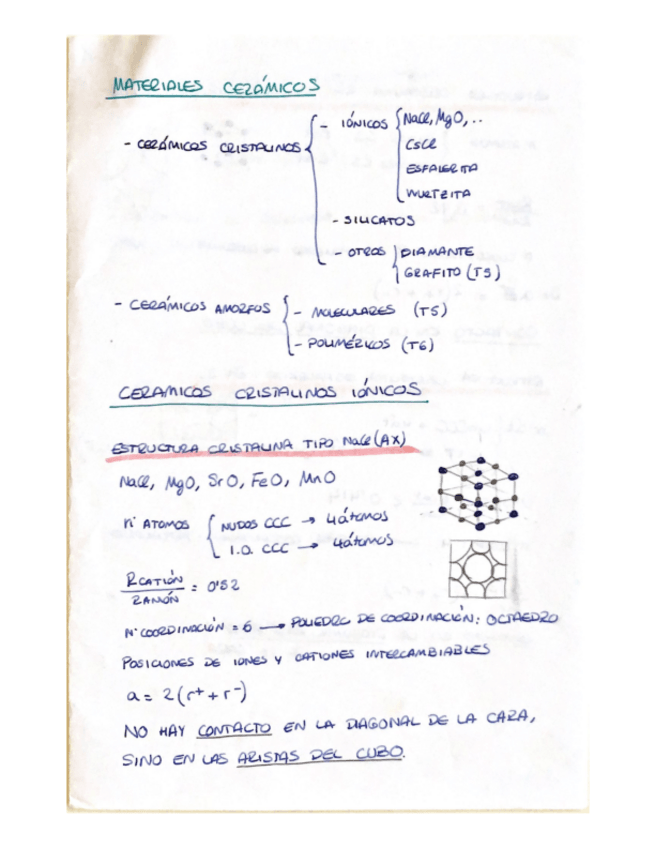 MATERIALES CERÁMICOS
- CERÁMICOS CRISTALINOS
- IÓNICOS
NaCl, MgO, ..
CsCl
ESFALERITA
WURTZITA
- SILICATOS
- OTROS
DIAMANTE
GRAFITO (T5)
- CERÁMICOS AMORFOS
- MOLECULARES (T5)
- POLIMÉRICOS (T6)
CERAMICOS CRISTALINOS IÓNICOS
ESTRUCTURA CRISTALINA TIPO NaCl (AX)
NaCl, MgO, SrO, FeO, MnO
nº ATOMOS
NUDOS CCC → 4 átomos
I.O. CCC → 4 átomos
RCATIÓN
RANIÓN
= 0'52
Nº COORDINACIÓN = 6 → POLIEDRO DE COORDINACIÓN: OCTAEDRO
POSICIONES DE IONES Y CATIONES INTERCAMBIABLES
a = 2(r⁺ + r⁻)
NO HAY CONTACTO EN LA DIAGONAL DE LA CARA,
SINO EN LAS ARISTAS DEL CUBO.